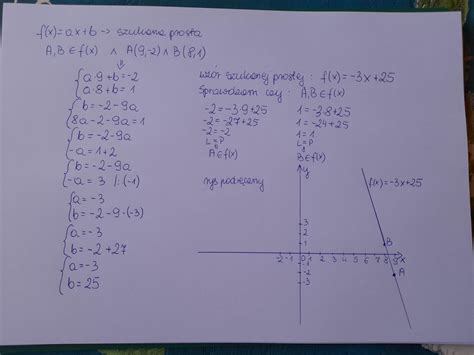 f(x)=ax+b -> szukana prosta
A,B∈f(x) ∧ A(9,-2) ∧ B(8,1)
⇓
{a·9+b=-2
a·8+b=1
{b=-2-9a
8a-2-9a=1
{b=-2-9a
-a=1+2
{b=-2-9a
-a=3 /:(-1)
{a=-3
b=-2-9·(-3)
{a=-3
b=-2+27
{a=-3
b=25
wzór szukanej prostej: f(x)=-3x+25
Sprawdzam czy: A,B∈f(x)
-2=-3·9+25
-2=-27+25
-2=-2
L=P
⇓
A∈f(x)
1=-3·8+25
1=-24+25
1=1
L=P
⇓
B∈f(x)
rys podręczny
y
f(x)=-3x+25
3
2
1
B
-2 -1 0 1 2 3 4 5 6 7 8 9 x
-1
-2
-3
A